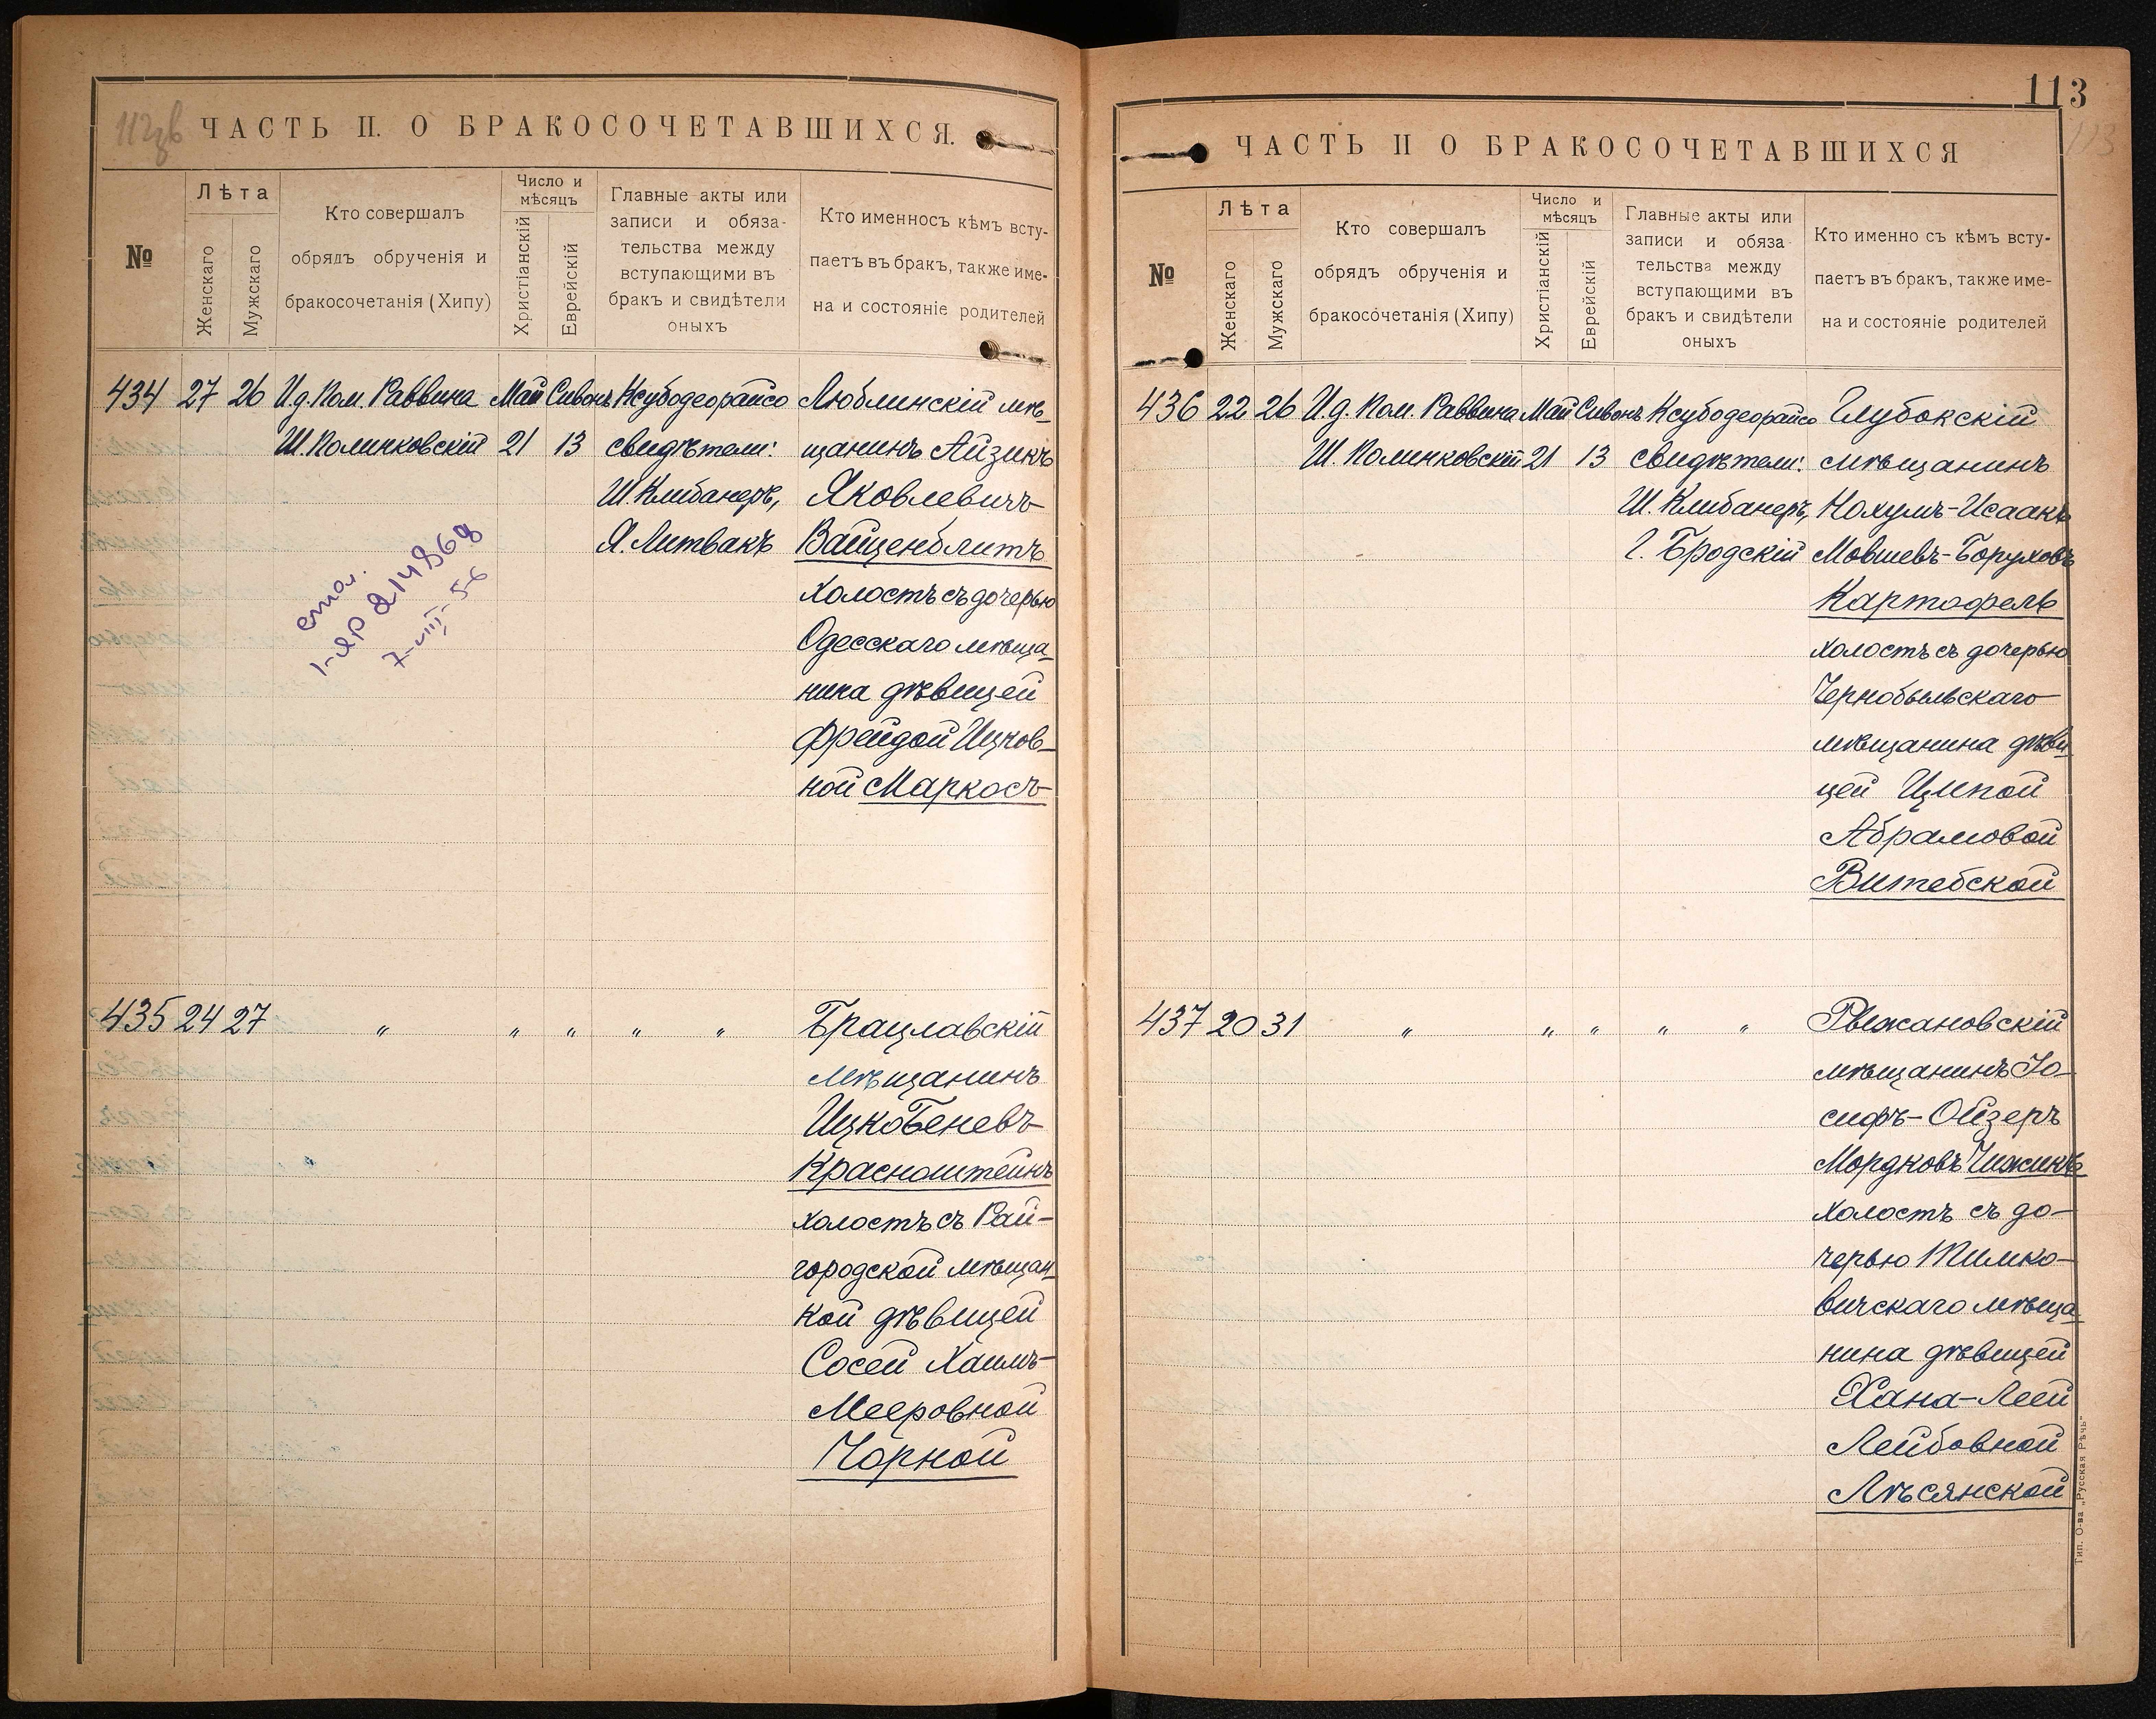 ЧАСТЬ II. О БРАКОСОЧЕТАВШИХСЯ.
№
Лѣта
Женскаго
Мужскаго
Кто совершалъ
обрядъ обрученія и
бракосочетанія (Хипу)
Число и
мѣсяцъ
Христіанскій
Еврейскій
Главные акты или
записи и обяза-
тельства между
вступающими въ
бракъ и свидѣтели
оныхъ
Кто именносъ кѣмъ всту-
паетъ въ бракъ, также име-
на и состояніе родителей
434 27 26 И.д. Пом. Раввина Май Сивонъ Ксубодеорайсо Люблинскій мѣ-
Ш. Полинковскій 21 13 свидѣтели: щанинъ Айзикъ
Ш. Клибанеръ, Яковлевичъ
Я. Литвакъ Вайценблитъ
холостъ съ дочерью
Одесскаго мѣща-
нина дѣвицей
Фрейдой Ицков-
ной Маркосъ
1-ЯР 214868
7-VIII-56
435 24 27 " " " " " Брацлавскій
мѣщанинъ
Ицко Беневъ
Краснштейнъ
холостъ съ Рай-
городской мѣщан-
кой дѣвицей
Сосей Хаимъ-
Мееровной
Чорной
113
113
ЧАСТЬ II О БРАКОСОЧЕТАВШИХСЯ
№
Лѣта
Женскаго
Мужскаго
Кто совершалъ
обрядъ обрученія и
бракосочетанія (Хипу)
Число и
мѣсяцъ
Христіанскій
Еврейскій
Главные акты или
записи и обяза
тельства между
вступающими въ
бракъ и свидѣтели
оныхъ
Кто именно съ кѣмъ всту-
паетъ въ бракъ, также име-
на и состояніе родителей
436 22 26 И.д. Пом. Раввина Май Сивонъ Ксубодеорайсо Глубокскій
Ш. Полинковскій 21 13 свидѣтели: мѣщанинъ
Ш. Клибанеръ, Нохумъ-Исаакъ
Г. Бродскій Мовшевъ-Боруховъ
Картофель
холостъ съ дочерью
Чернобыльскаго
мѣщанина дѣви-
цей Ципой
Абрамовой
Витебской
437 20 31 " " " " " Рыжановскій
мѣщанинъ Іо-
сифъ-Ойзеръ
Мордковъ Чижикъ
холостъ съ до-
черью Тимко-
вичскаго мѣща-
нина дѣвицей
Хана-Леей
Лейбовной
Лѣсянской
Тип. О-ва „Русская Рѣчь"